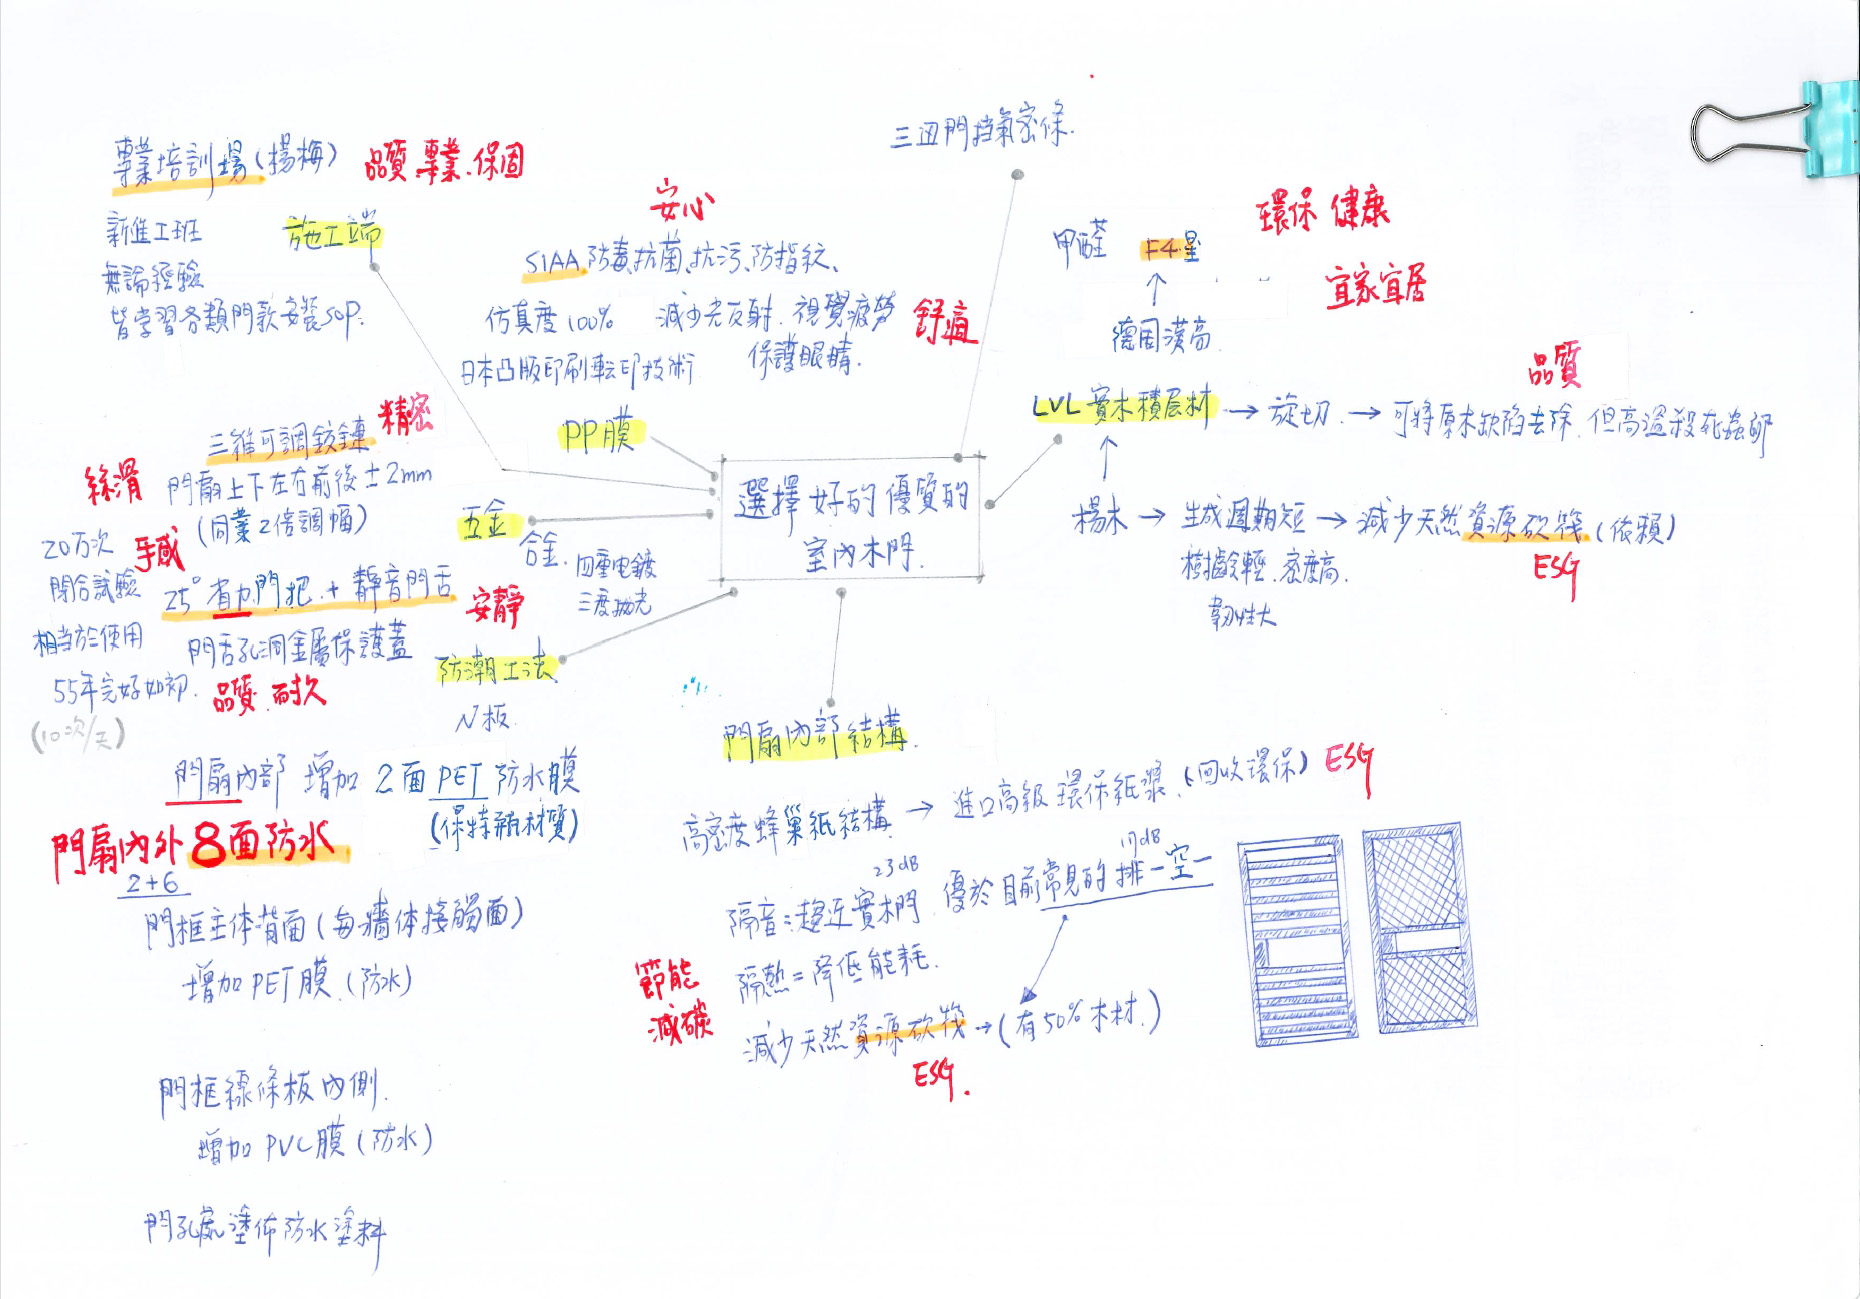 三面門擋氣密條.
專業培訓場(楊梅)
品質.專業.保固
新進工班
無論經驗
皆學習各類門款安裝SOP.
施工端
安心
SIAA.防毒、抗菌、抗污、防指紋、
仿真度100%
減少光反射.視覺疲勞
保護眼睛.
舒適
日本凸版印刷転印技術
PP膜
環保 健康
甲醛 F4星
宜家宜居
德國漢高.
品質
LVL實木積层材 → 旋切. → 可將原木缺陷去除.但高溫殺死蟲卵
楊木 → 生成週期短 → 減少天然資源砍伐(依賴)
樹齡輕.密度高.
韌性大
ESG
選擇好的優質的
室內木門.
三維可調鉸鍊
精密
絲滑
門扇上下左右前後±2mm
(同業2倍調幅)
手感
20万次
閉合試驗
相当於使用
55年完好如初.
(10次/天)
25°省力門把+靜音門舌
安靜
門舌孔洞金屬保護蓋
品質.耐久
五金
合金.四重电鍍
三度拋光
防潮工法
N板.
門扇內部 增加2面PET防水膜
(保特瓶材質)
門扇內外8面防水
2+6
門框主体背面(與牆体接觸面)
增加PET膜.(防水)
門框線條板內側.
增加PVC膜(防水)
門孔處塗佈防水塗料
門扇內部結構.
高密度蜂巢紙結構. → 進口高級環保紙漿.(回收環保) ESG
23dB
17dB
隔音:趨近實木門.優於目前常見的排一空一
隔熱=降低能耗.
節能
減碳
減少天然資源砍伐→(有50%木材.)
ESG.